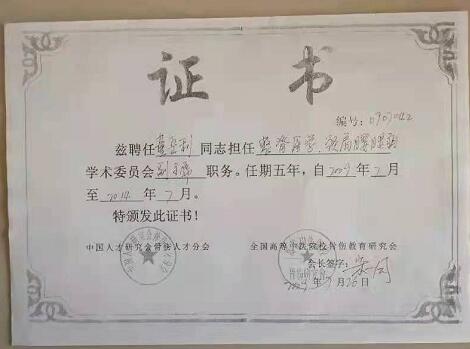 证 书
编号：0907042
兹聘任 同志担任整脊医学、
学术委员会副主席职务。任期五年，自2009年7月
至2014年7月。
特颁发此证书！
中国人才研究会骨伤人才分会 全国高等中医院校骨伤教育研究会
会长签字：
2009年7月26日